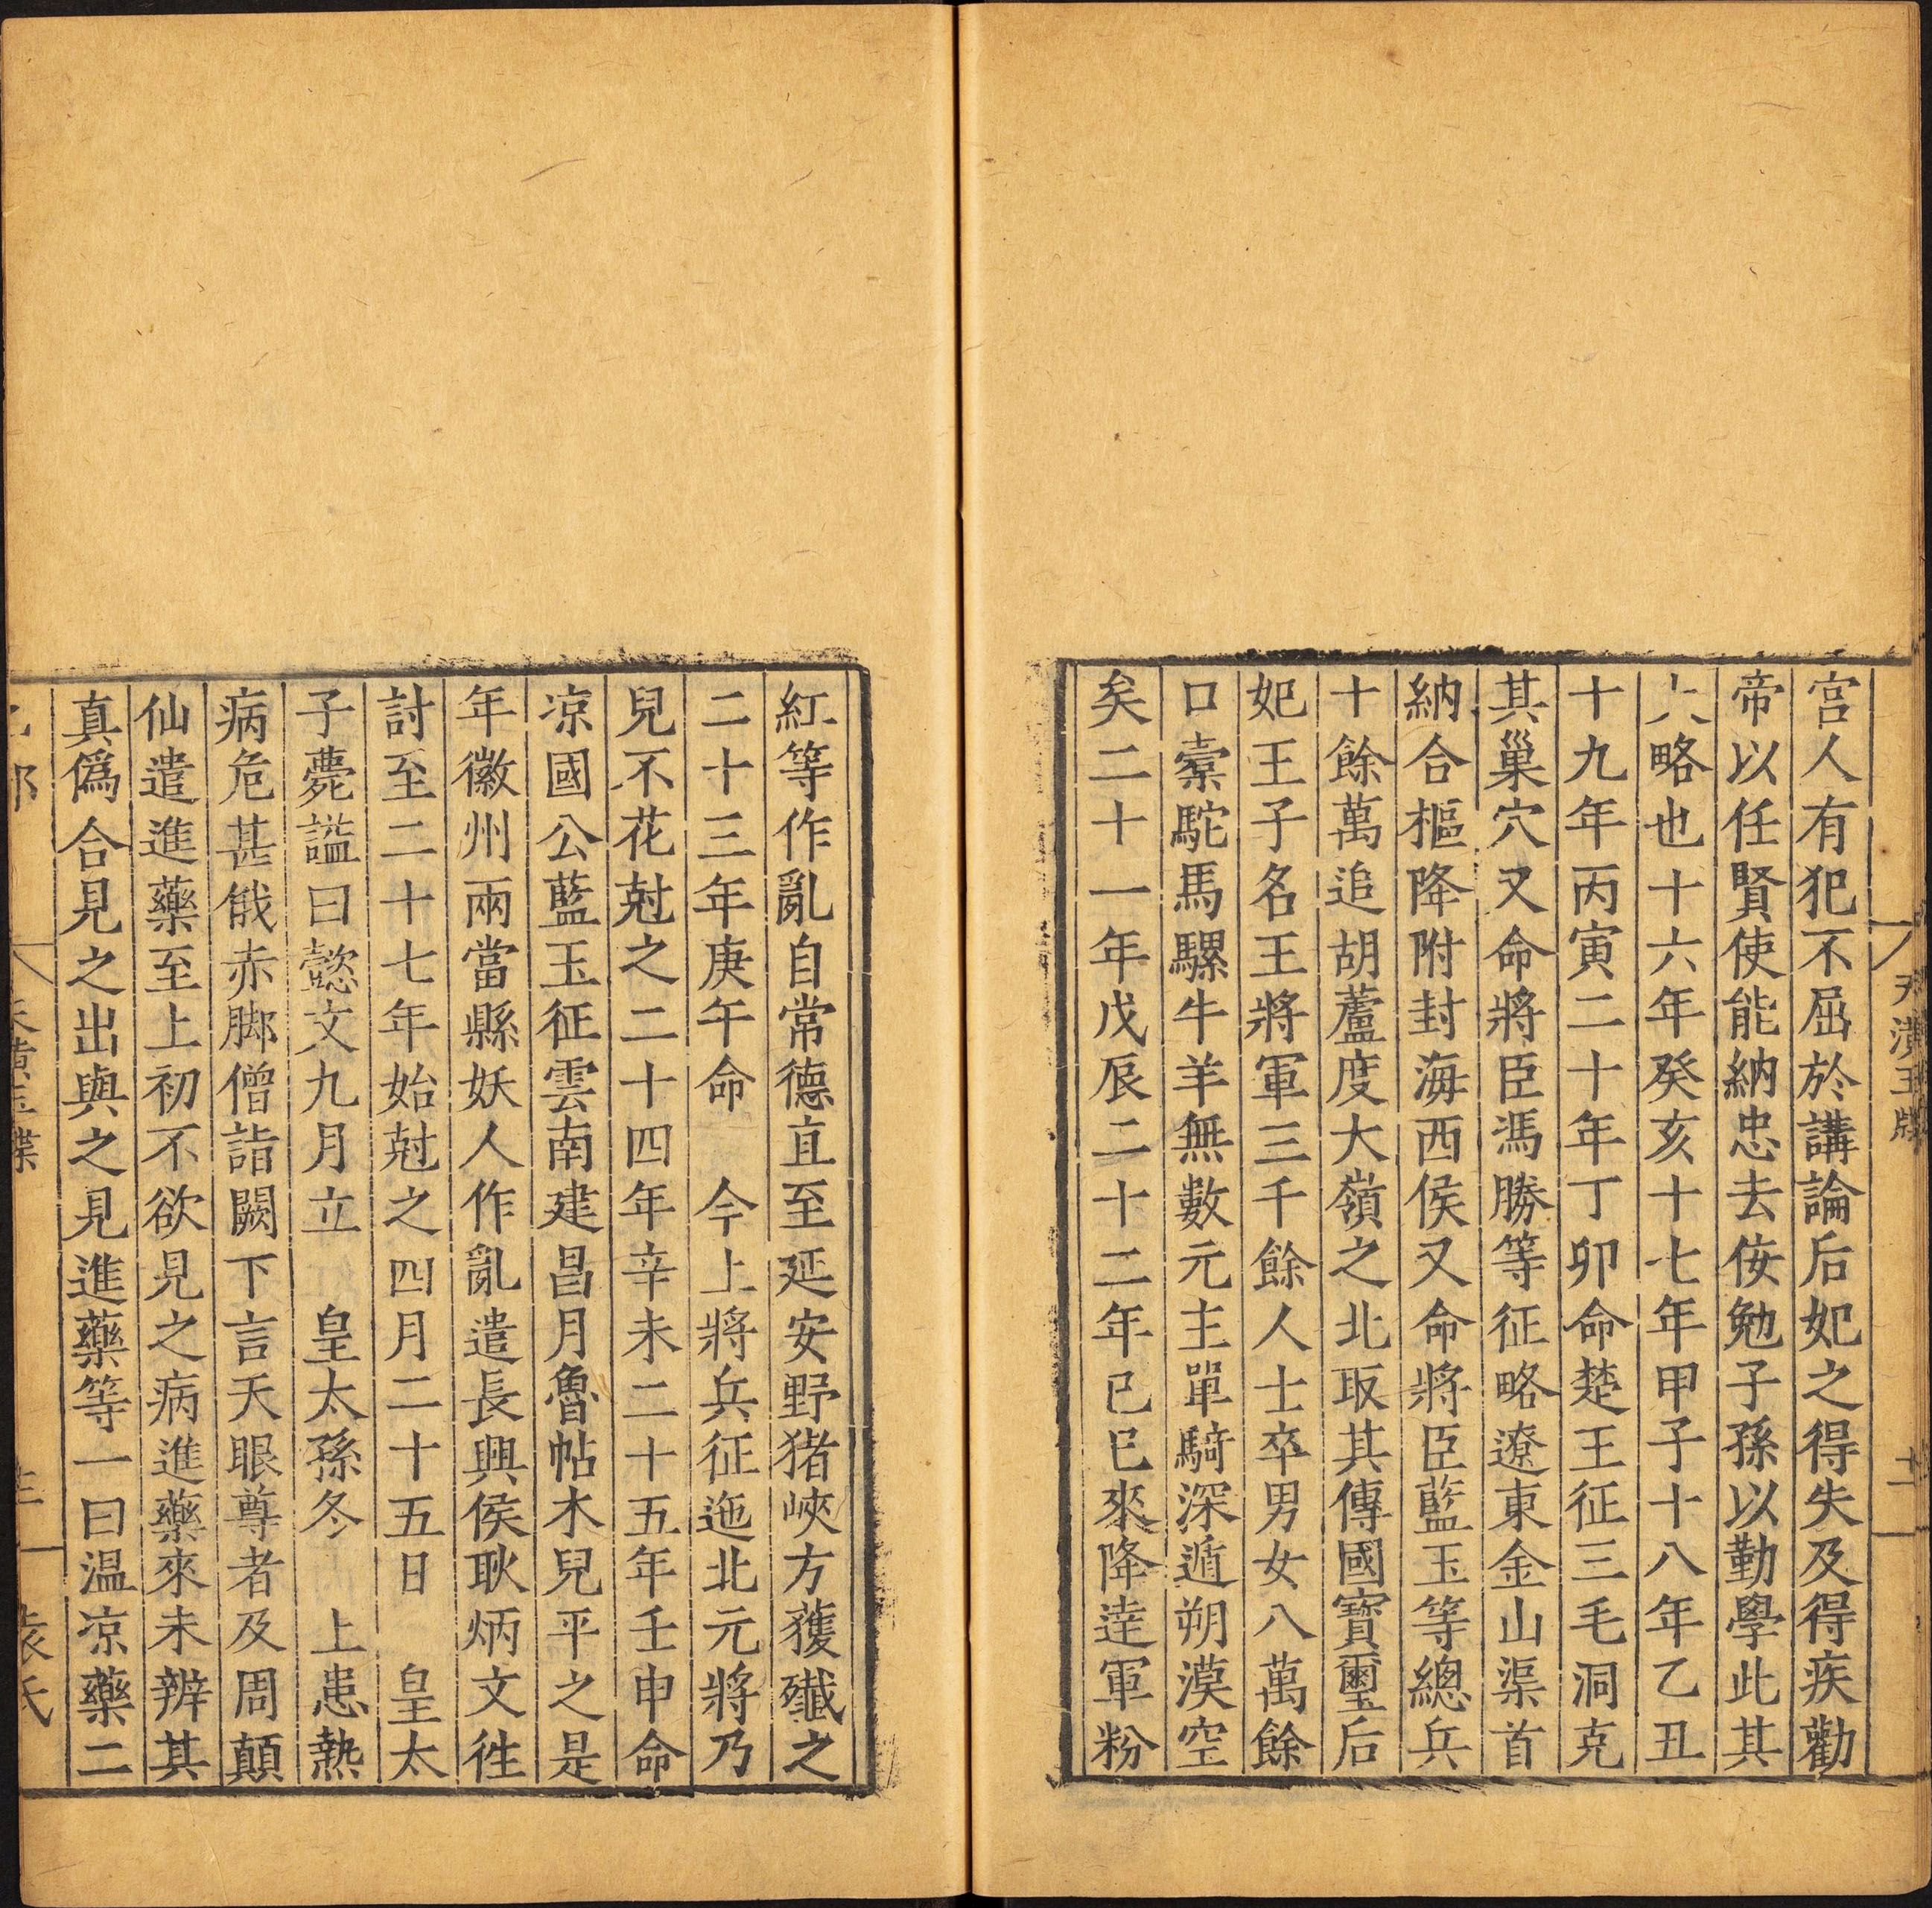 宮人有犯不屈於講論后妃之得失及得疾勸
帝以任賢使能納忠去佞勉子孫以勤學此其
大略也十六年癸亥十七年甲子十八年乙丑
十九年丙寅二十年丁卯命楚王征三毛洞克
其巢穴又命將臣馮勝等征略遼東金山渠首
納合樞降附封海西侯又命將臣藍玉等總兵
十餘萬追胡蘆度大嶺之北取其傳國寶璽后
妃王子名王將軍三千餘人士卒男女八萬餘
口橐駝馬騾牛羊無數元主單騎深遁朔漠空
矣二十一年戊辰二十二年已巳來降達軍粉
紅等作亂自常德直至延安野猪峽方獲殲之
二十三年庚午命 今上將兵征迤北元將乃
兒不花尅之二十四年辛未二十五年壬申命
凉國公藍玉征雲南建昌月魯帖木兒平之是
年徽州兩當縣妖人作亂遣長興侯耿炳文徃
討至二十七年始尅之四月二十五日 皇太
子薨謚曰懿文九月立 皇太孫冬 上患熱
病危甚俄赤脚僧詣闕下言天眼尊者及周顛
仙遣進藥至上初不欲見之病進藥來未辨其
真僞合見之出與之見進藥等一曰温凉藥二
天潢玉牒
袁氏